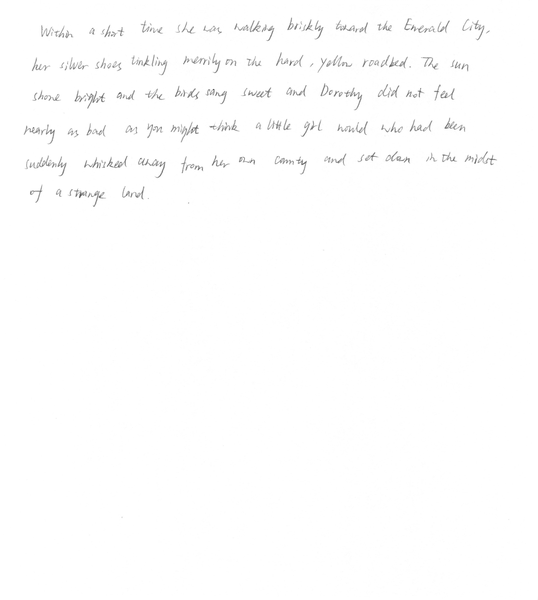 Within a short time she was walking briskly toward the Emerald City,
her silver shoes tinkling merrily on the hard, yellow roadbed. The sun
shone bright and the birds sang sweet and Dorothy did not feel
nearly as bad as you might think a little girl would who had been
suddenly whisked away from her own country and set down in the midst
of a strange land.